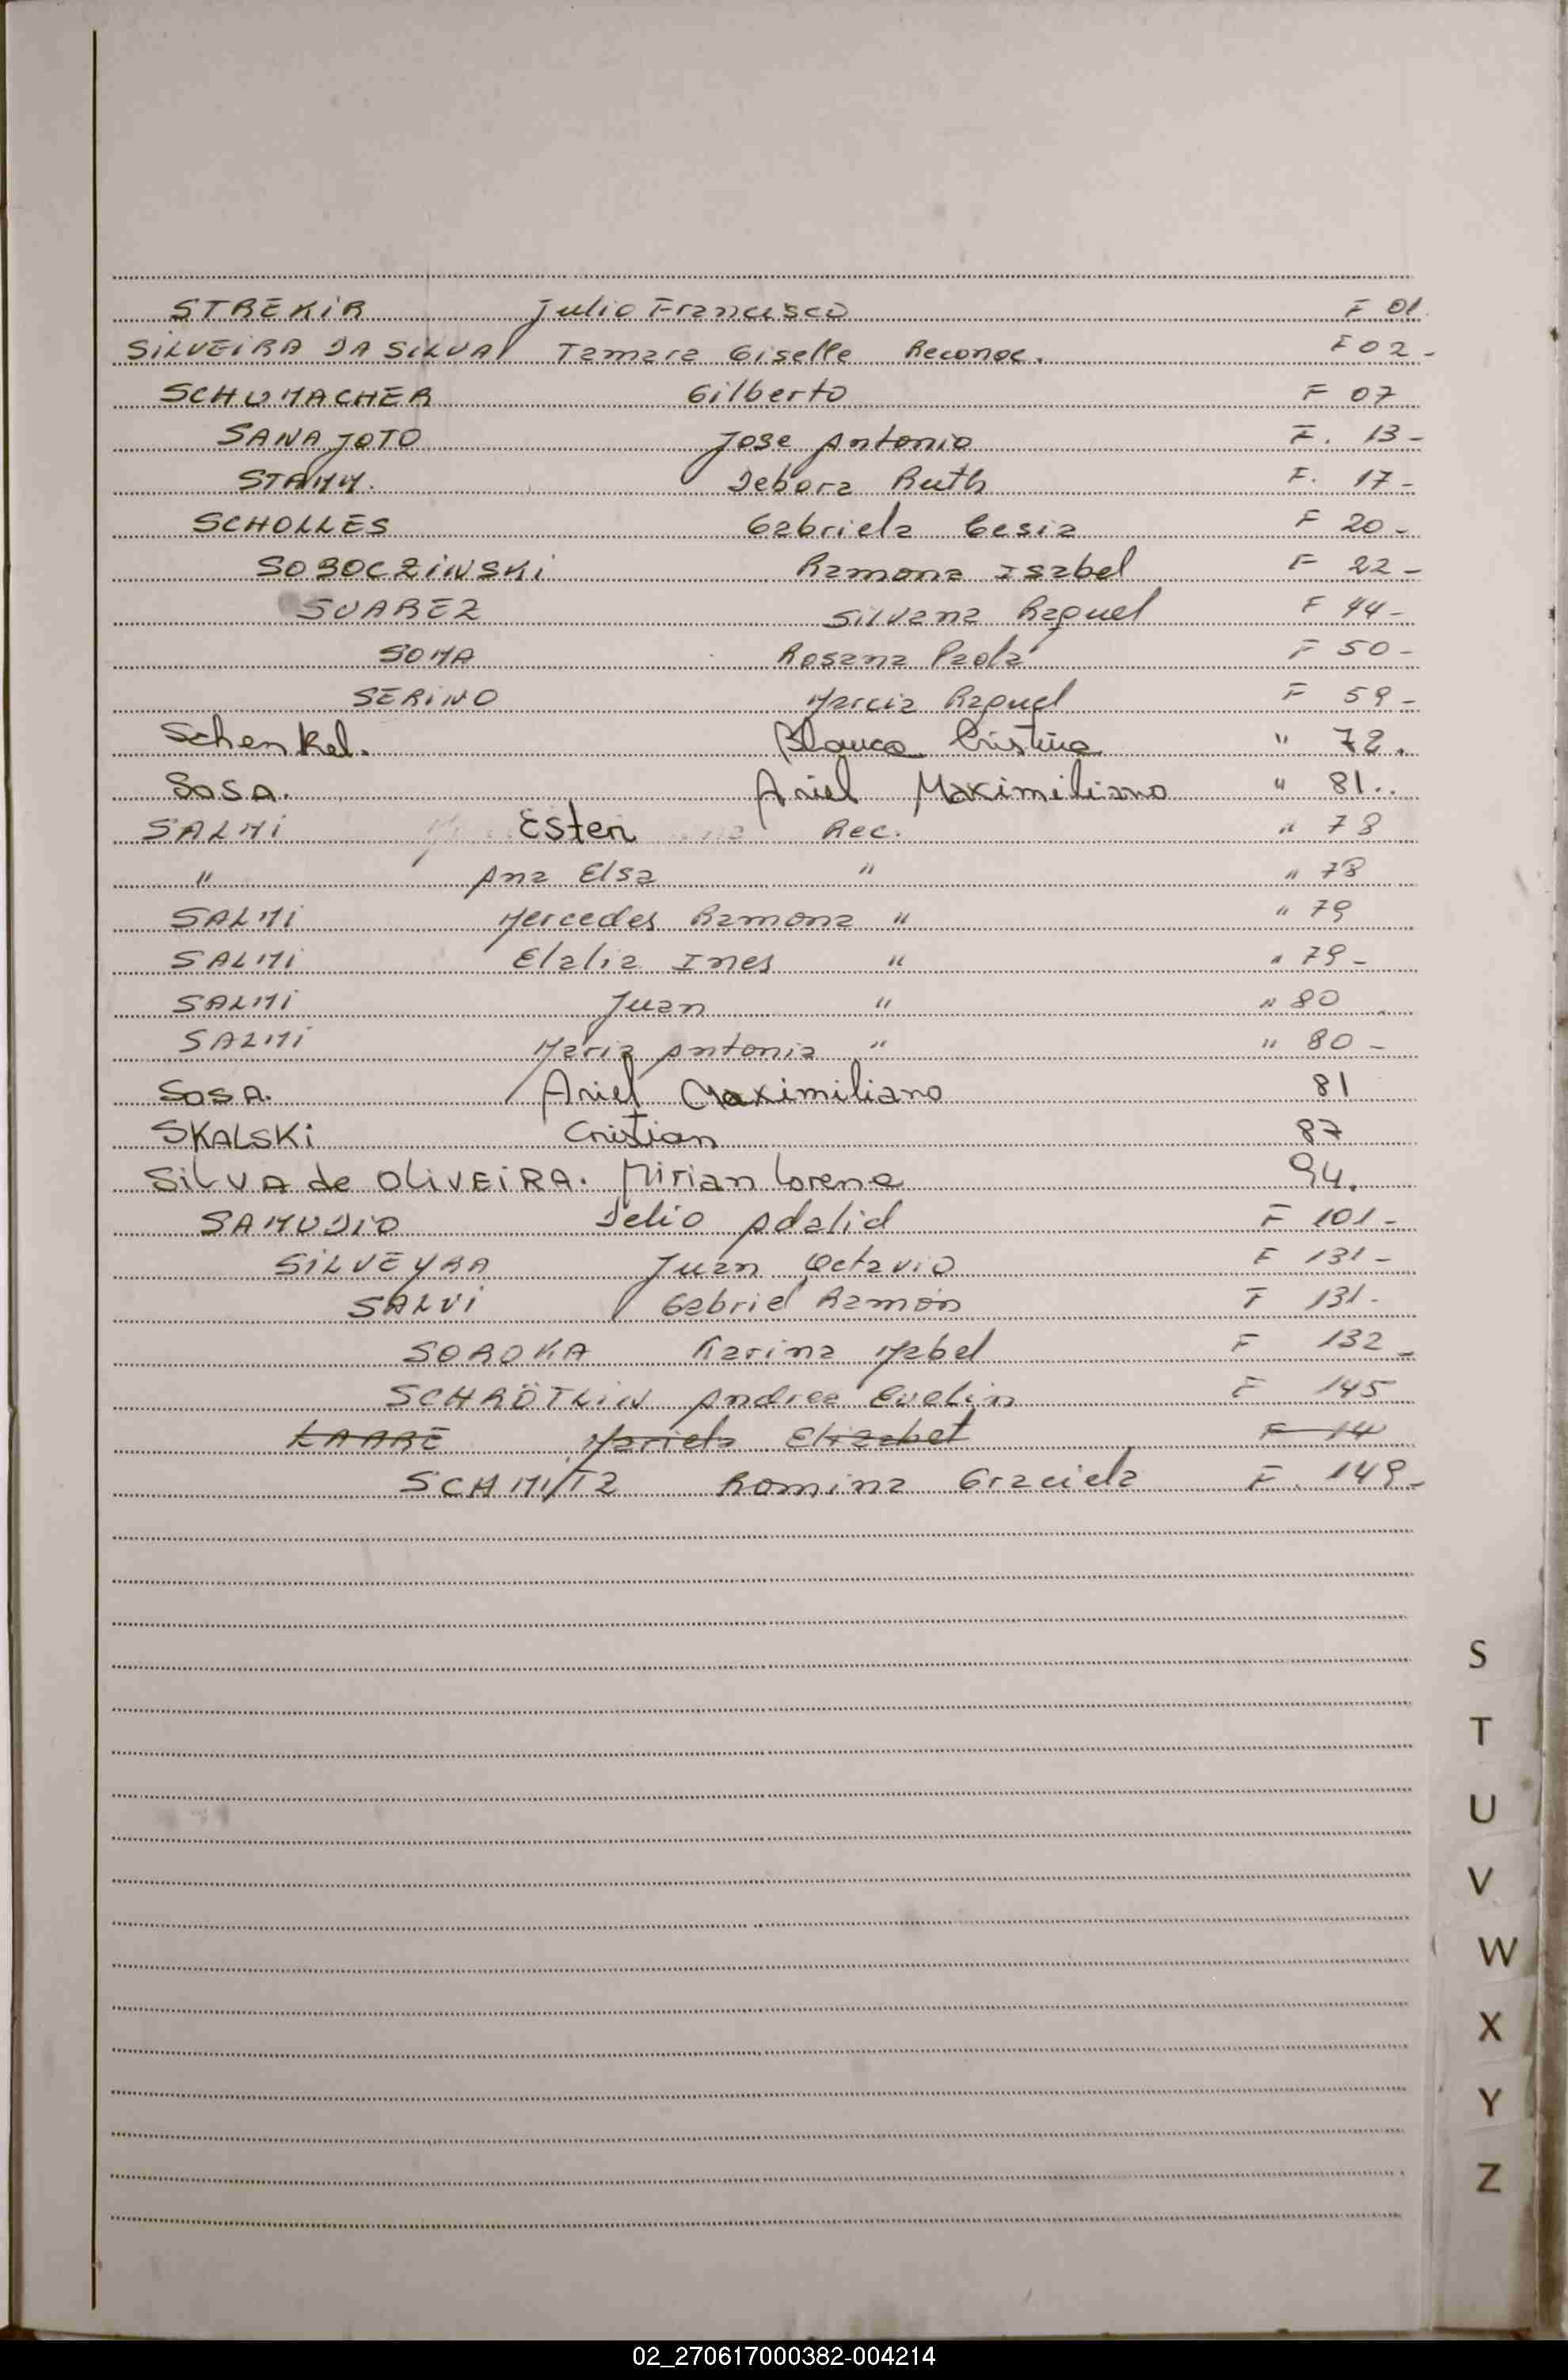 STREKIR Julio Francisco F 01
SILVEIRA DA SILVA Tamara Giselle Reconoc. F 02-
SCHUMACHER Gilberto F 07
SANA JOTO Jose Antonio F. 13-
STAMM. Debora Ruth F. 17-
SCHOLLES Gabriela Cesia F 20-
SOBOCZINSKI Ramona Isabel F 22-
SUAREZ Silvana Raquel F 44-
SOMA Rosana Paola F 50-
SERINO Marcia Raquel F 59-
Schenkel. Blanca Cristina " 72.
SOSA. Ariel Maximiliano " 81..
SALMI Ester Rec. " 78
" Ana Elsa " " 78
SALMI Mercedes Ramona " " 79
SALMI Elalia Ines " " 79-
SALMI Juan " " 80
SALMI Maria Antonia " " 80-
SOSA. Ariel Maximiliano 81
SKALSKI Cristian 87
SILVA de OLIVEIRA. Mirian Lorena 94.
SAMUDIO Delio Adalid F 101-
SILVEYRA Juan Octavio F 131-
SALVI Gabriel Ramón F 131-
SOROKA Karina Mabel F 132-
SCHRÖTLIN Andrea Evelin F 145
KAARE Mariela Elizabet F 14
SCHMITZ Romina Graciela F. 149-
S
T
U
V
W
X
Y
Z
02_270617000382-004214